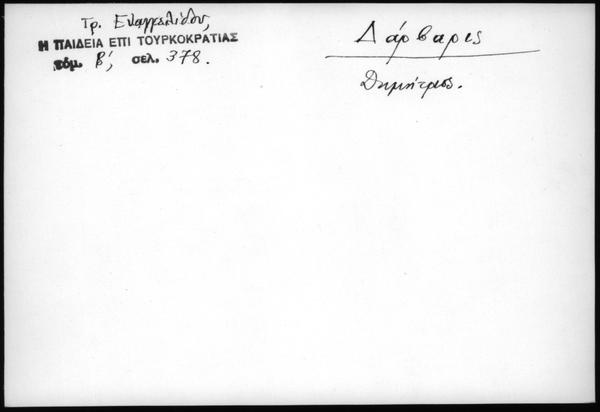 Τρ. Ευαγγελίδου,
Η ΠΑΙΔΕΙΑ ΕΠΙ ΤΟΥΡΚΟΚΡΑΤΙΑΣ
τόμ. β', σελ. 378.
Δάρβαρις
Δημήτριος.